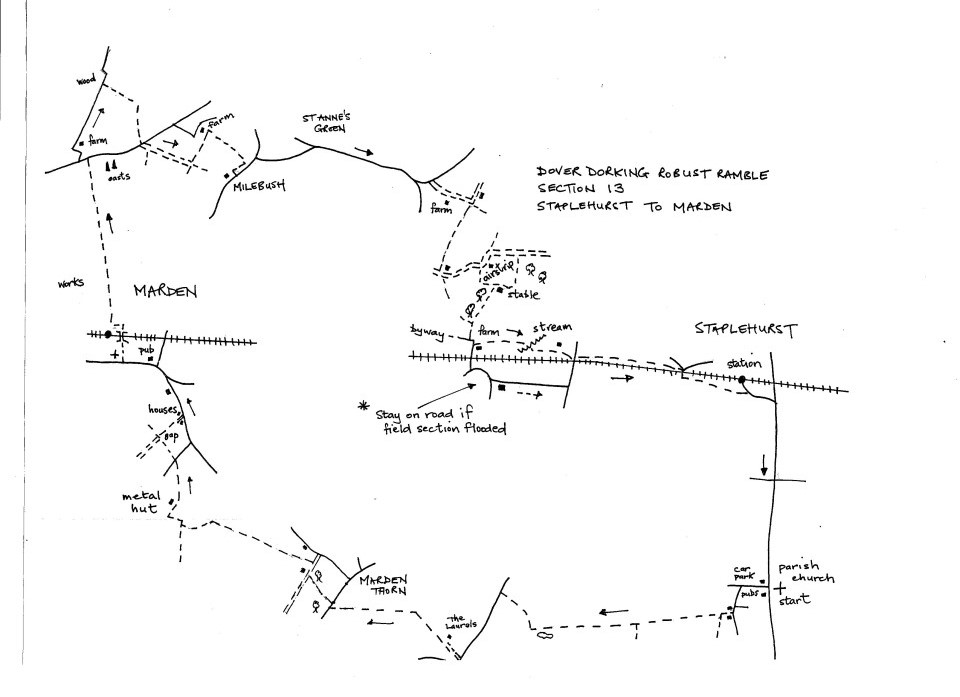 DOVER DORKING ROBUST RAMBLE
SECTION 13
STAPLEHURST TO MARDEN
wood
farm
oasts
farm
MILEBUSH
ST ANNE'S
GREEN
farm
works
MARDEN
pub
airstrip
stable
byway
farm
stream
STAPLEHURST
station
* Stay on road if
field section flooded
houses
gap
metal
hut
MARDEN
THORN
The
Laurels
car
park
pubs
parish
church
start